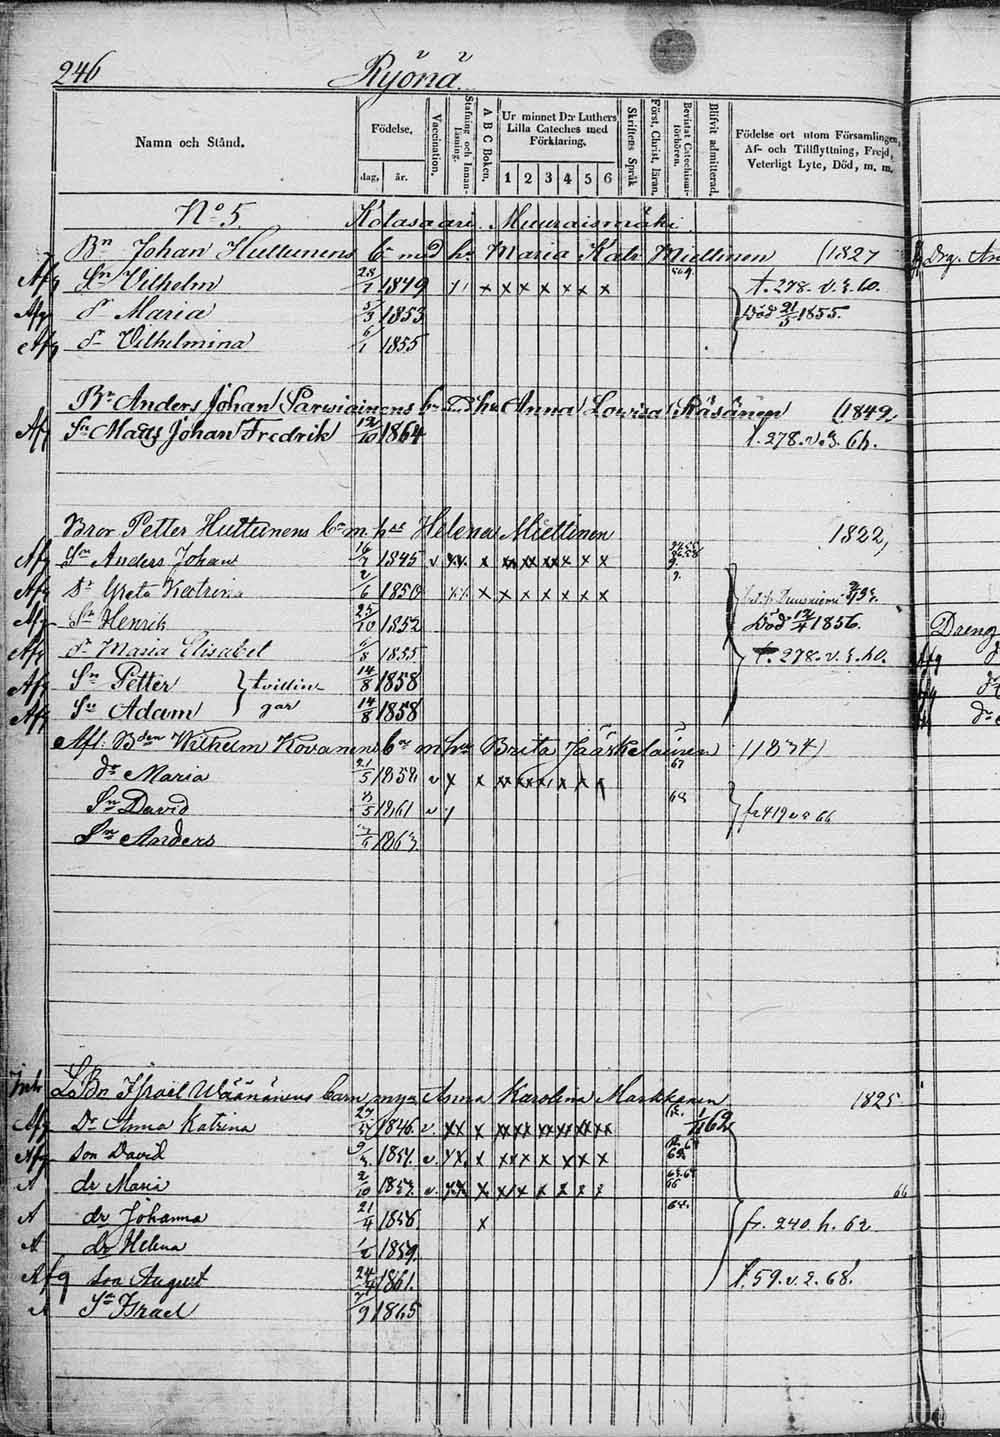 246 Ryönä
Namn och Stånd.
Födelse.
dag, år.
Vaccination.
Stafning och Innanläsning.
A B C Boken.
Ur minnet D:r Luthers Lilla Cateches med Förklaring.
1 2 3 4 5 6
Skriftens Språk
Först. Christ. läran.
Bevistat Catechismiförhören.
Blifvit admitterad.
Födelse ort utom Församlingen, Af- och Tillflyttning, Frejd, Veterligt Lyte, Död, m. m.
No 5. Kolasaari. Muuraismäki.
Bn Johan Huttunens bn med hu Maria Katr Miettinen (1827
Afg Sn Vilhelm 28/7 1849 x x x x x x x t. 278. v. 3. 60.
Afg dr Maria 5/3 1853 Död 21/5 1855.
Afg dr Vilhelmina 6/1 1855
Bn Anders Johan Sarwiainens bn med hu Anna Lowisa Räsänen (1849)
Afg Sn Matts Johan Fredrik 12/10 1864 t. 278. v. 3. 66.
Bror Petter Huttunens bn m. hu Helena Miettinen 1822,
Afg Sn Anders Johan 16/7 1845 v xx x xx xx xx x x x
Afg Dr Greta Katrina 2/6 1850 x x x x x x x
Afg Sn Henrik 23/10 1852 Död 12/4 1856.
Afg dr Maria Elisabet 6/8 1855 t. 278. v. 3. 60.
Afg Sn Petter 14/8 1858 tvillin-
Afg Sn Adam 14/8 1858 gar
Afl. Bden Wilhelm Kovanens bn m hu Brita Jääskeläinen (1834)
dr Maria 21/5 1858 v x x x x x x x x 67
Sn David 3/5 1861 v 68 fr 419 v 2 66
Sn Anders 1863
Inh LBn Israel Wäänänens barn m. Anna Karolina Markkanen 1825.
Afg Dr Anna Katrina 1846 v. xx x xx xx xx xx xx xx 62
Afg son David 1851. v. xx. x x x x x x x
A dr Maria 2/10 1853. v. xx x x x x x x x 66
A dr Johanna 21/4 1856 x 64. fr. 240. h. 62
A dr Helena 1/2 1859.
Afg son August 1861. t. 59. v. 2. 68.
A Sn Israel 1865
Drg. An
Dreng
Afg